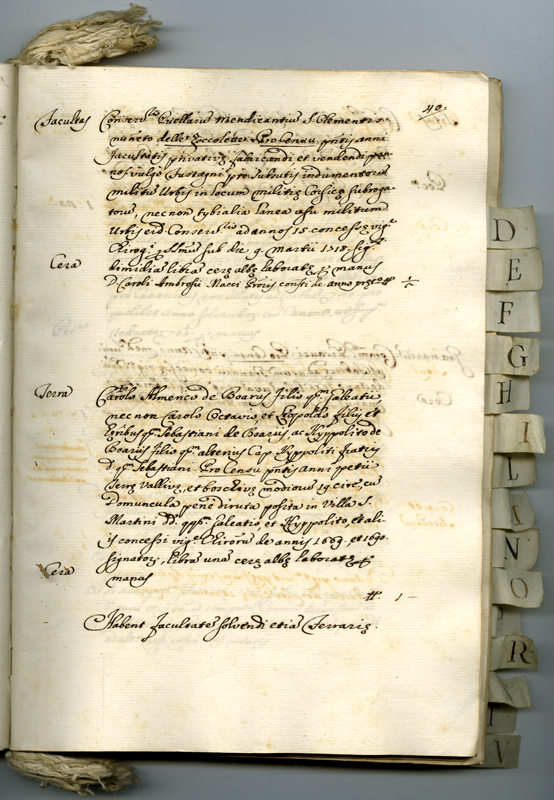 40.
Facultas Conserv.rio Puellarũ Mendicantiũ S. Clementis
nuncto delle Zoccolette Pro Censu pñtis anni
facultatis privativę fabricandi et vendendi
vulgo Fustagni pro subutis indumentorũ
militũ Urbis in locum militię Corsicę subroga-
torũ, nec non tybialia lanea usu militum
Urbis eid. Conserv.rio ad annos 15. concessę vig.e
Chirog. SSmi sub die 9. Martii 1715. sig.
Cera dimidiã libra cerę albę laboratę p manus
D. Caroli Ambrosii Macci de anno
Terra Carolo Almenco de Boariis filio q.m Galeatii
nec non Carolo Octavio, et Leopoldo filiis et
q.m Sebastiani de Boariis, ac Hyppolito de
Boariis filio q.m alterius Cap. Hyppoliti fratris
d. q.m Sebastiani Pro Censu pñtis anni petii
Terrę Vallivę, et boschivę modiorũ 19 circ., cũ
Domuncula penę diruta posita in Villa S.
Martini DD. Galeatio, et Hyppolito, et ali-
is concessi vig.e Chirorũ de annis 1669. et 1690.
Cera signator., libra una cerę albę laboratę p
manus
1 —
Habent facultatẽ solvendi etiã Ferrarię.
D
E
F
G
H
I
L
A
N
O
P
R
I
V